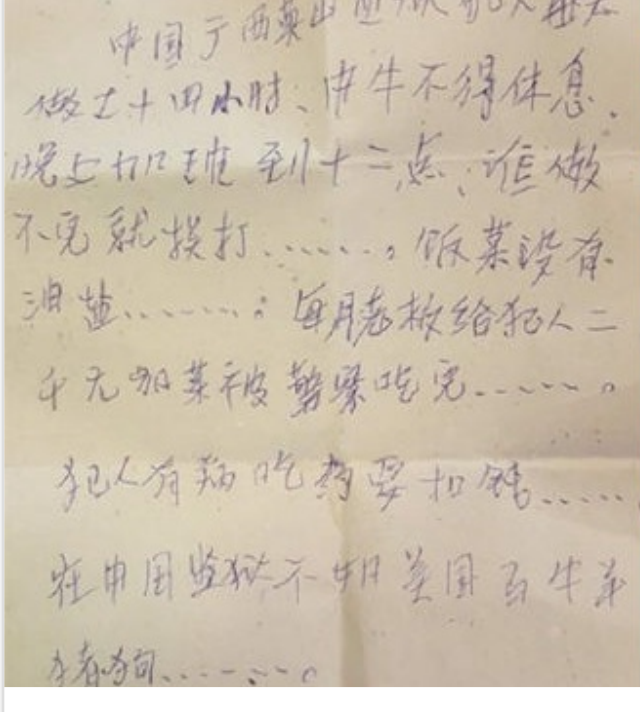 中国广西英山监狱犯人每天
做工十四小时、中午不得休息、
晚上加班到十二点、谁做
不完就挨打……。饭菜没有
油盐……；每月老板给犯人二
千元加菜被警察吃完……。
犯人有病吃药要扣钱……
在中国监狱不如美国马牛羊
猪狗……。